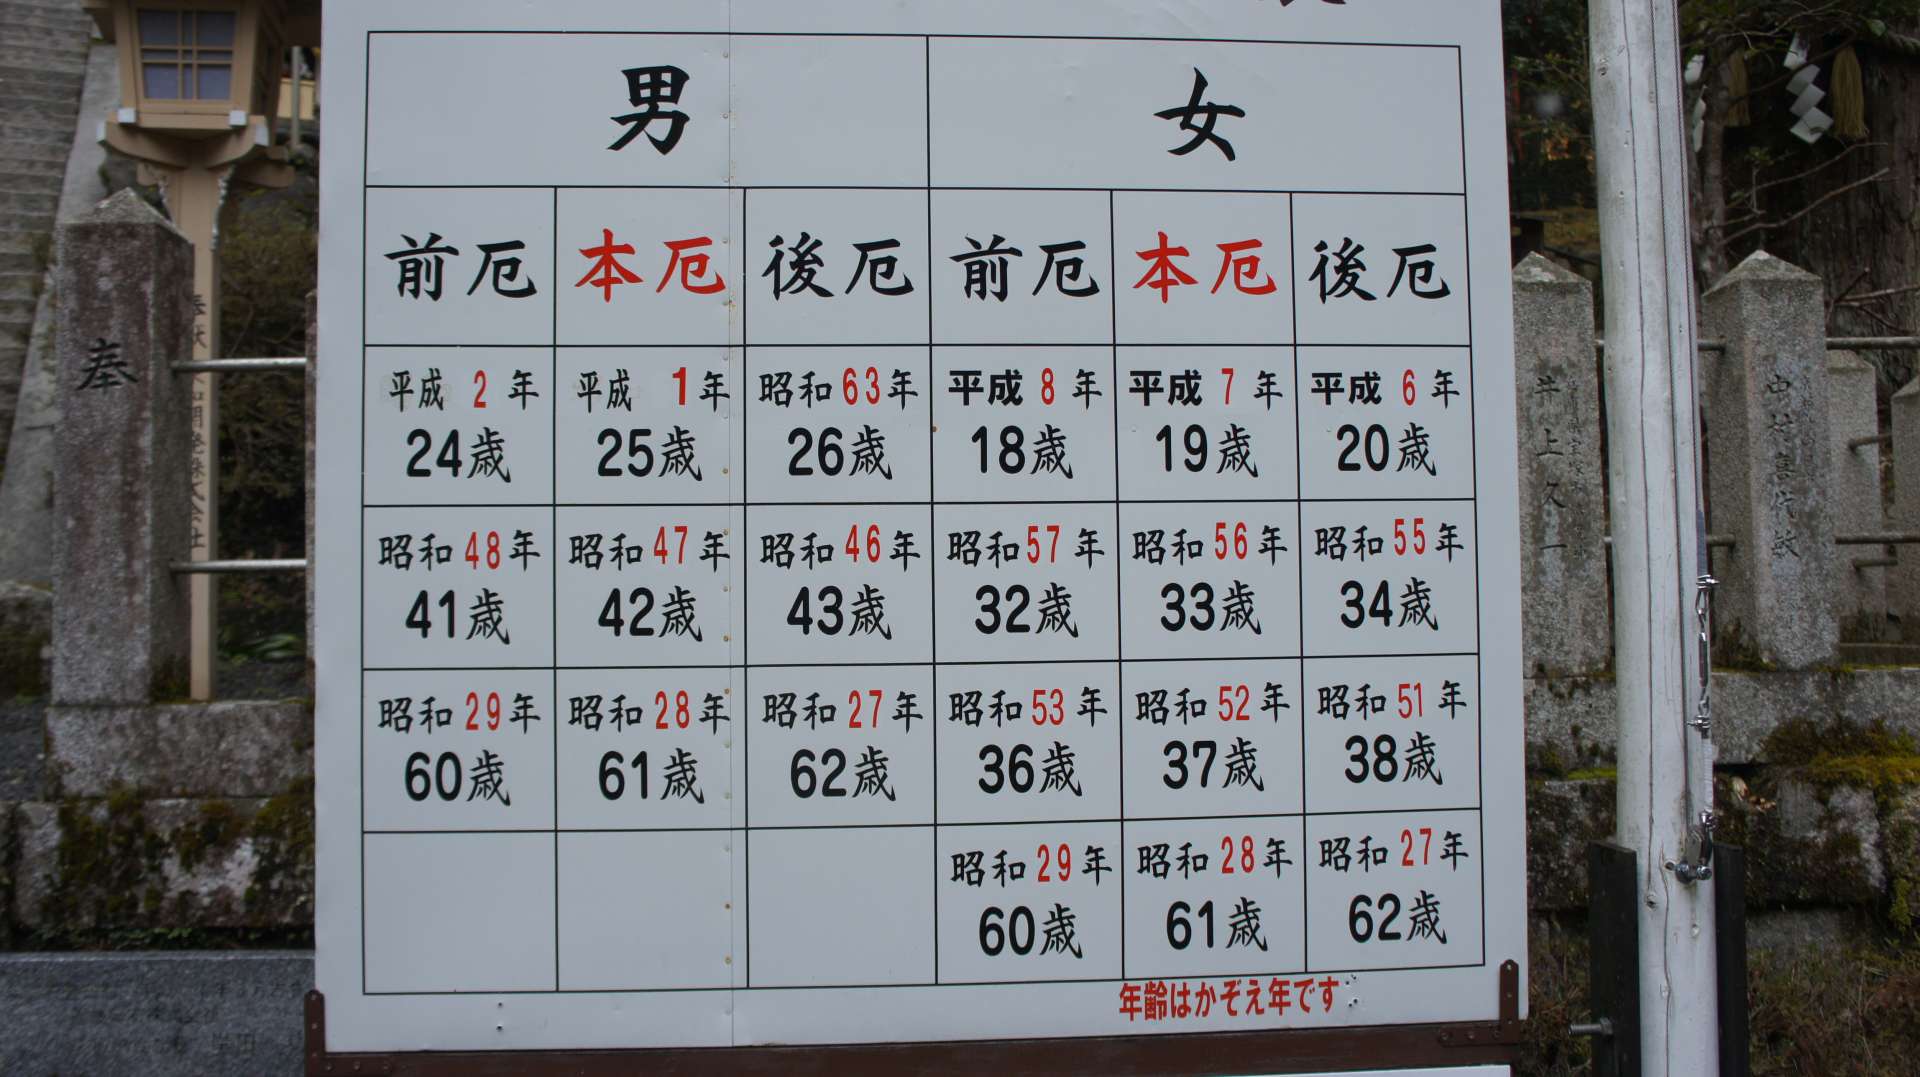 男 女
前厄 本厄 後厄 前厄 本厄 後厄
平成 2 年 平成 1 年 昭和63年 平成 8 年 平成 7 年 平成 6 年
24歳 25歳 26歳 18歳 19歳 20歳
昭和48年 昭和47年 昭和46年 昭和57年 昭和56年 昭和55年
41歳 42歳 43歳 32歳 33歳 34歳
昭和29年 昭和28年 昭和27年 昭和53年 昭和52年 昭和51年
60歳 61歳 62歳 36歳 37歳 38歳
昭和29年 昭和28年 昭和27年
60歳 61歳 62歳
年齢はかぞえ年です
奉
井上久一